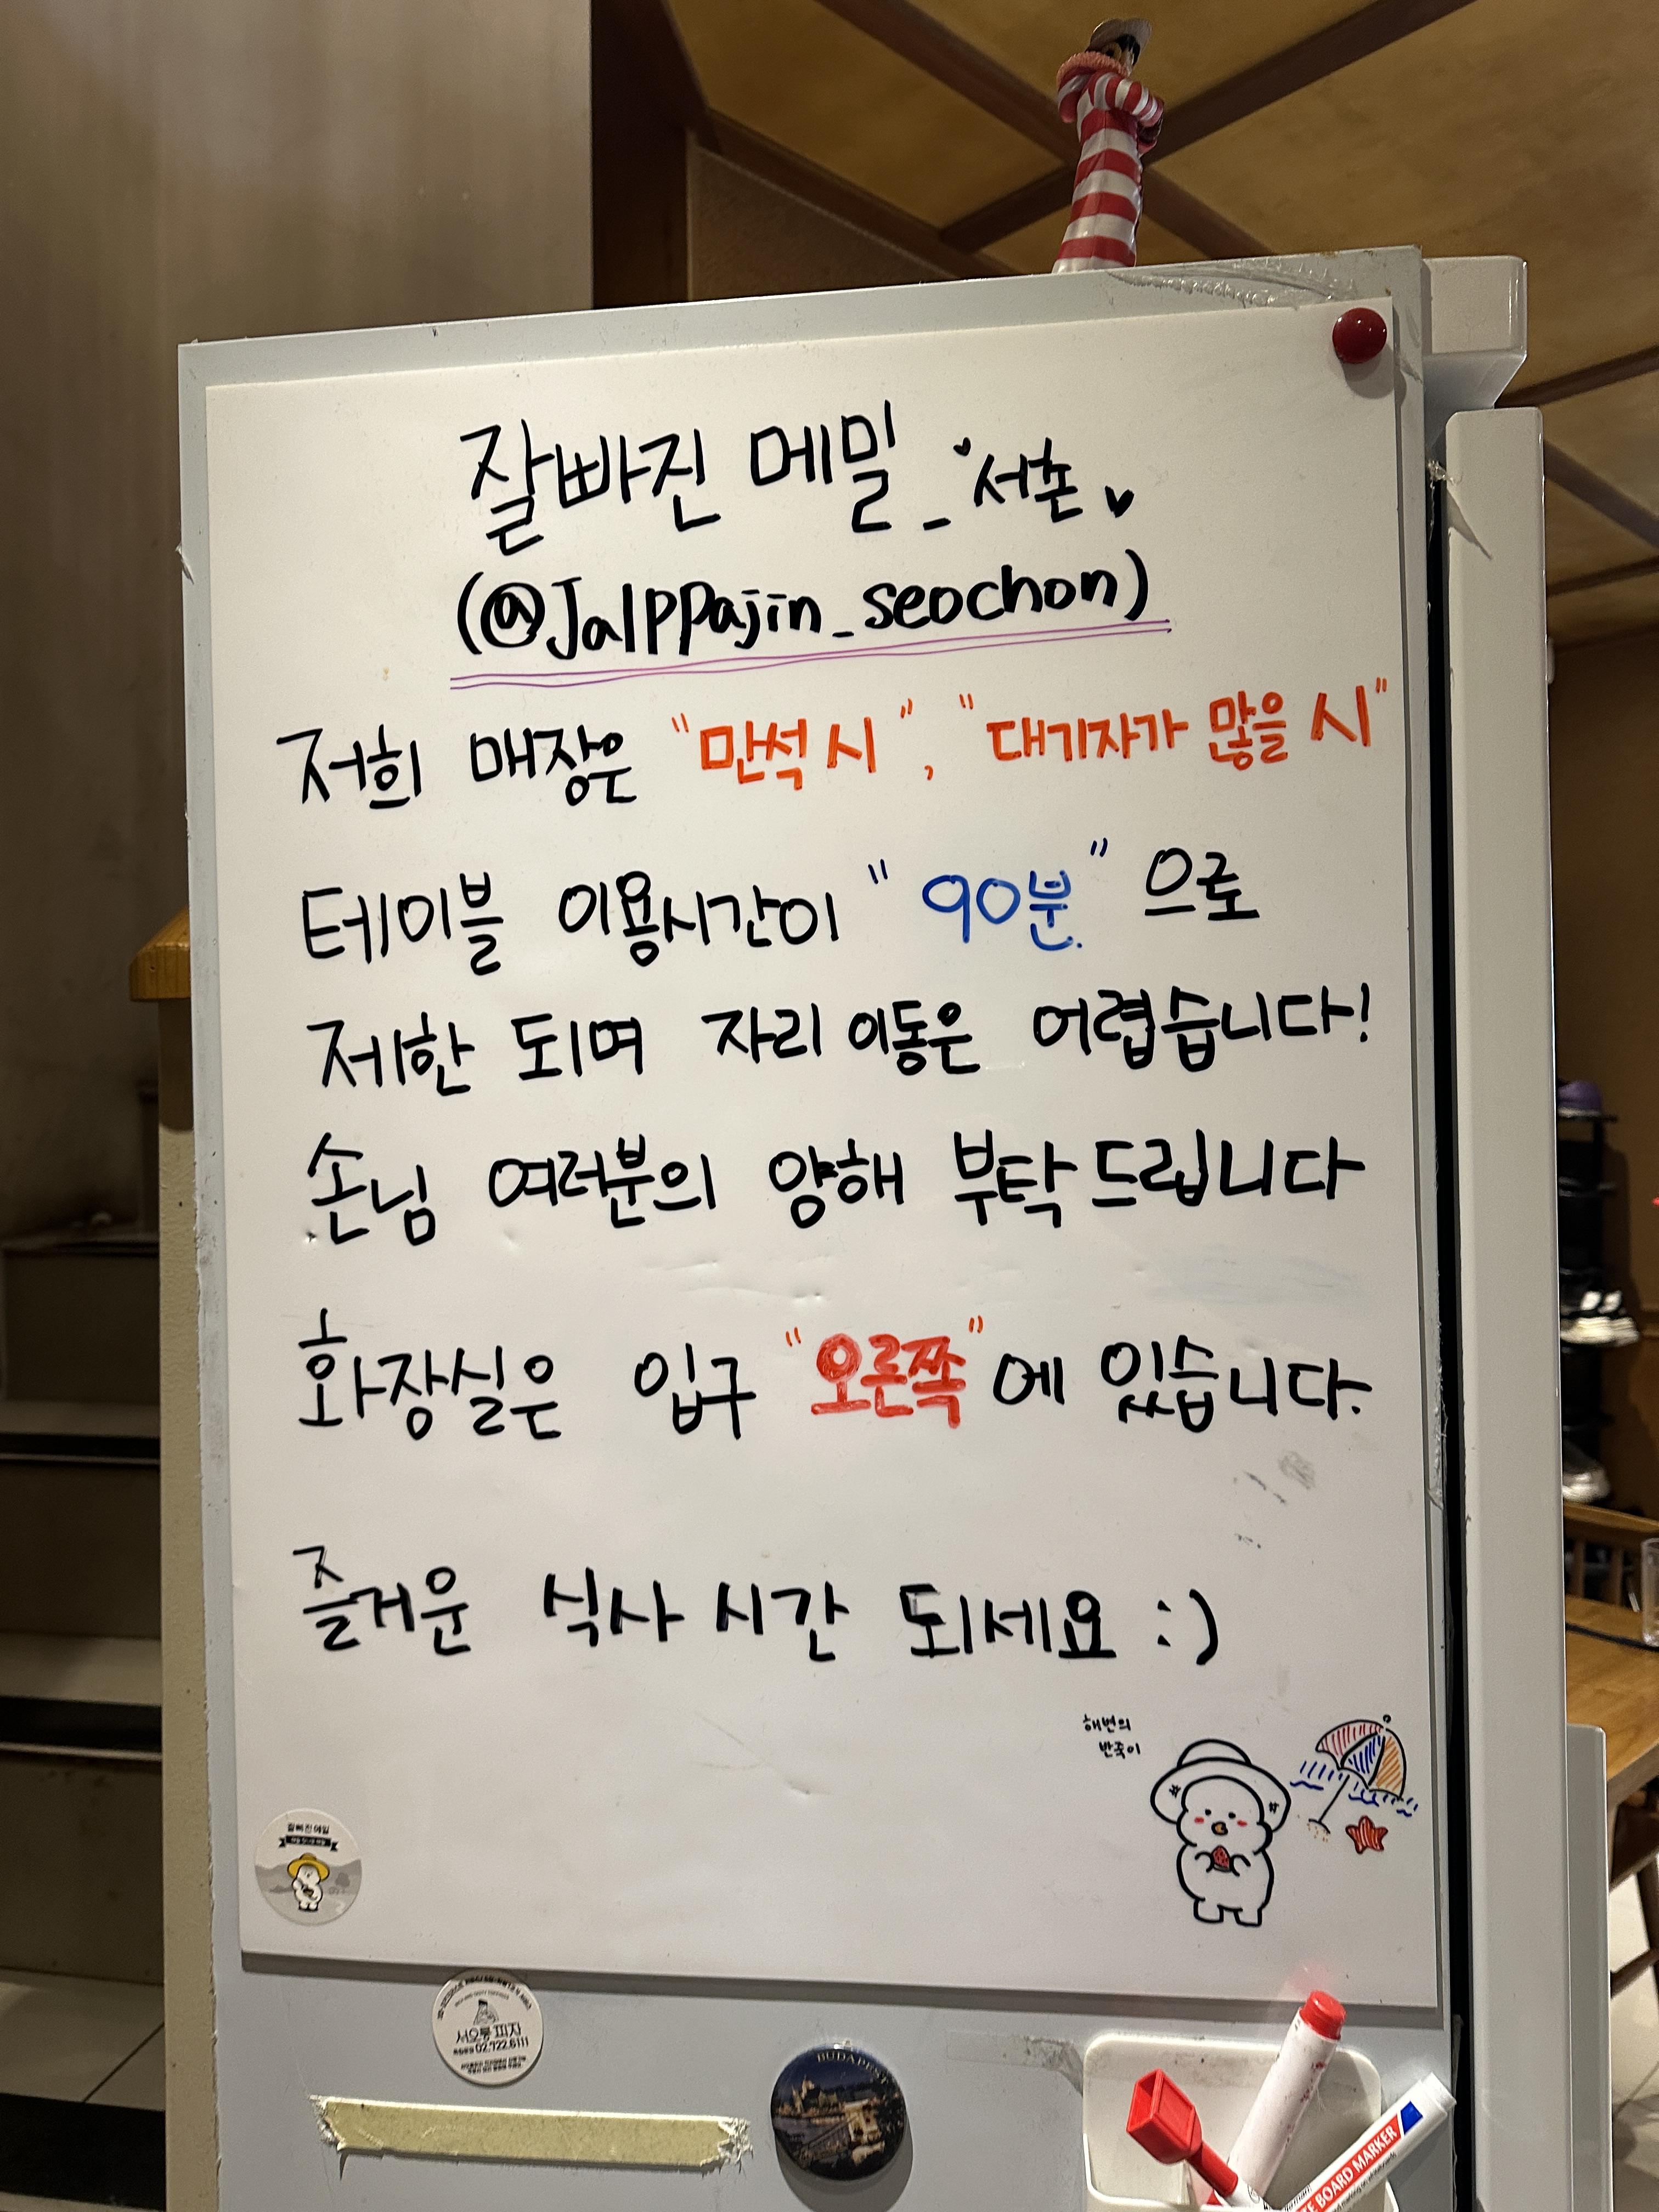 잘빠진 메밀_서촌♥
(@Jalppajin_seochon)
저희 매장은 "만석 시", "대기자가 많을 시"
테이블 이용시간이 "90분" 으로
제한 되며 자리 이동은 어렵습니다!
손님 여러분의 양해 부탁드립니다
화장실은 입구 "오른쪽"에 있습니다.
즐거운 식사 시간 되세요 :)
해변의
반죽이
잘빠진메밀
서오릉피자
02.722.6111
BUDAPEST
BOARD MARKER